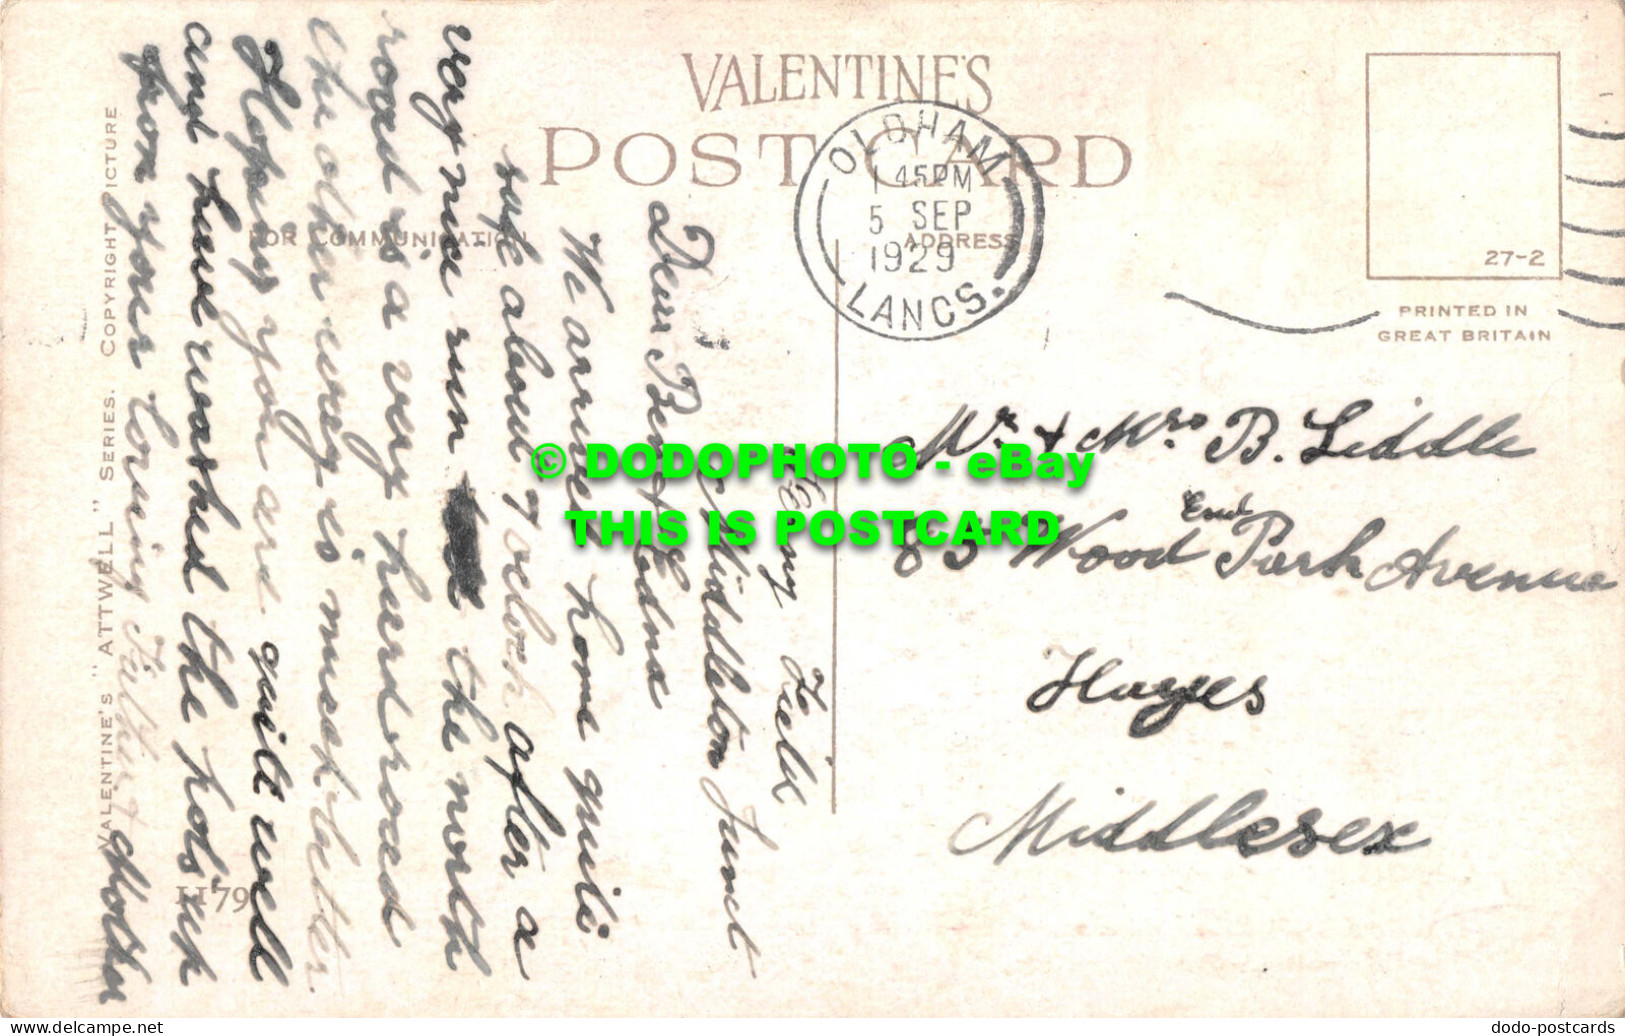 VALENTINE'S
POST CARD
FOR COMMUNICATION
ADDRESS
OLDHAM
1 45PM
5 SEP
1929
LANCS.
27-2
PRINTED IN
GREAT BRITAIN
Mr & Mrs B. Liddle
85 Wood End Park Avenue
Hayes
Middlesex
Field
Middleton Junct
Dear Bert & Edna
We arrived home quite
safe about 7 oclock after a
very nice run the north
road is a very hard road
the other way is much better
Hoping you are quite well
and have washed the pots up
from your loving Father Mother
VALENTINE'S "ATTWELL" SERIES. COPYRIGHT PICTURE
1179
© DODOPHOTO - eBay
THIS IS POSTCARD
www.delcampe.net
dodo-postcards